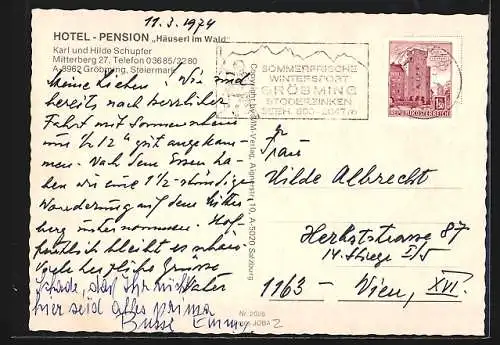 11.3.1974
HOTEL - PENSION „Häuserl im Wald"
Karl und Hilde Schupfer
Mitterberg 27, Telefon 03685/2280
A-8962 Gröbming, Steiermark
Meine Lieben! Wir sind
bereits nach herrlicher
Fahrt mit Sonnenschein
um ½12 h gut angekom-
men. Nach dem Essen ha-
ben wir eine 1½-stündige
Wanderung auf dem Mitter-
berg unternommen. Hof-
fentlich bleibt es schön.
Viele herzliche Grüsse
Vater
Schade, daß Ihr nicht
hier seid Alles prima
Bussi Emma
Copyright by MM-Verlag, Aignerstr. 10, A-5020 Salzburg
SOMMERFRISCHE
WINTERSPORT
GRÖBMING
STODERZINKEN
SEEH. 800 - 2047 m
REPUBLIK ÖSTERREICH
Frau
Hilde Albrecht
Herbststrasse 87
14. Stiege I/5
1163 - Wien, XVI.
Nr. 2028